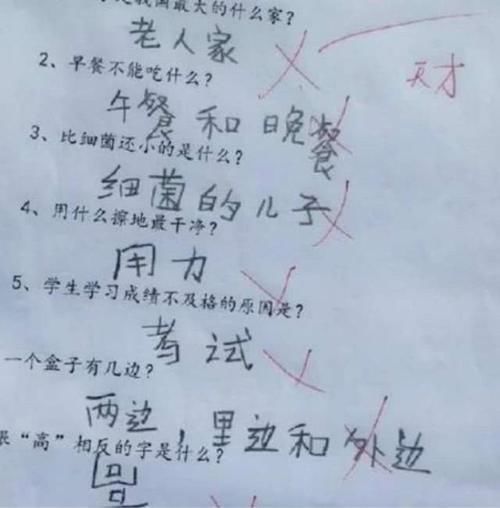 我国最大的什么家？
老人家
2、早餐不能吃什么？
天才
午餐和晚餐
3、比细菌还小的是什么？
细菌的儿子
4、用什么擦地最干净？
用力
5、学生学习成绩不及格的原因是？
考试
一个盒子有几边？
两边，里边和外边
“高”相反的字是什么？